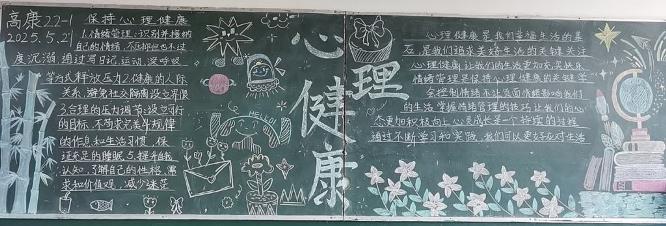 高康22-1 保持心理健康
2025.5.21
1.情绪管理:识别并接纳
自己的情绪,不压抑也不过
度沉溺,通过写日记、运动、深呼吸
等方式释放压力2.健康的人际
关系,避免社交隔离,设立界限
3.合理的压力调节:设立可行
的目标,不苛求完美4.规律
的作息和生活习惯,保
证充足的睡眠5.提升自我
认知,了解自己的性格、需
求和价值观,减少迷茫
HELLO!
心理健康
心理健康是我们幸福生活的基
石,是我们追求美好生活的关键关注
心理健康,让我们的生活更加充实快乐
情绪管理是保持心理健康的关键,学
会控制情绪,不让负面情绪影响我们
的生活,掌握情绪管理的技巧,让我们的心
态更加积极向上,心灵成长是一个持续的过程
通过不断学习和实践,我们可以更好应对生活